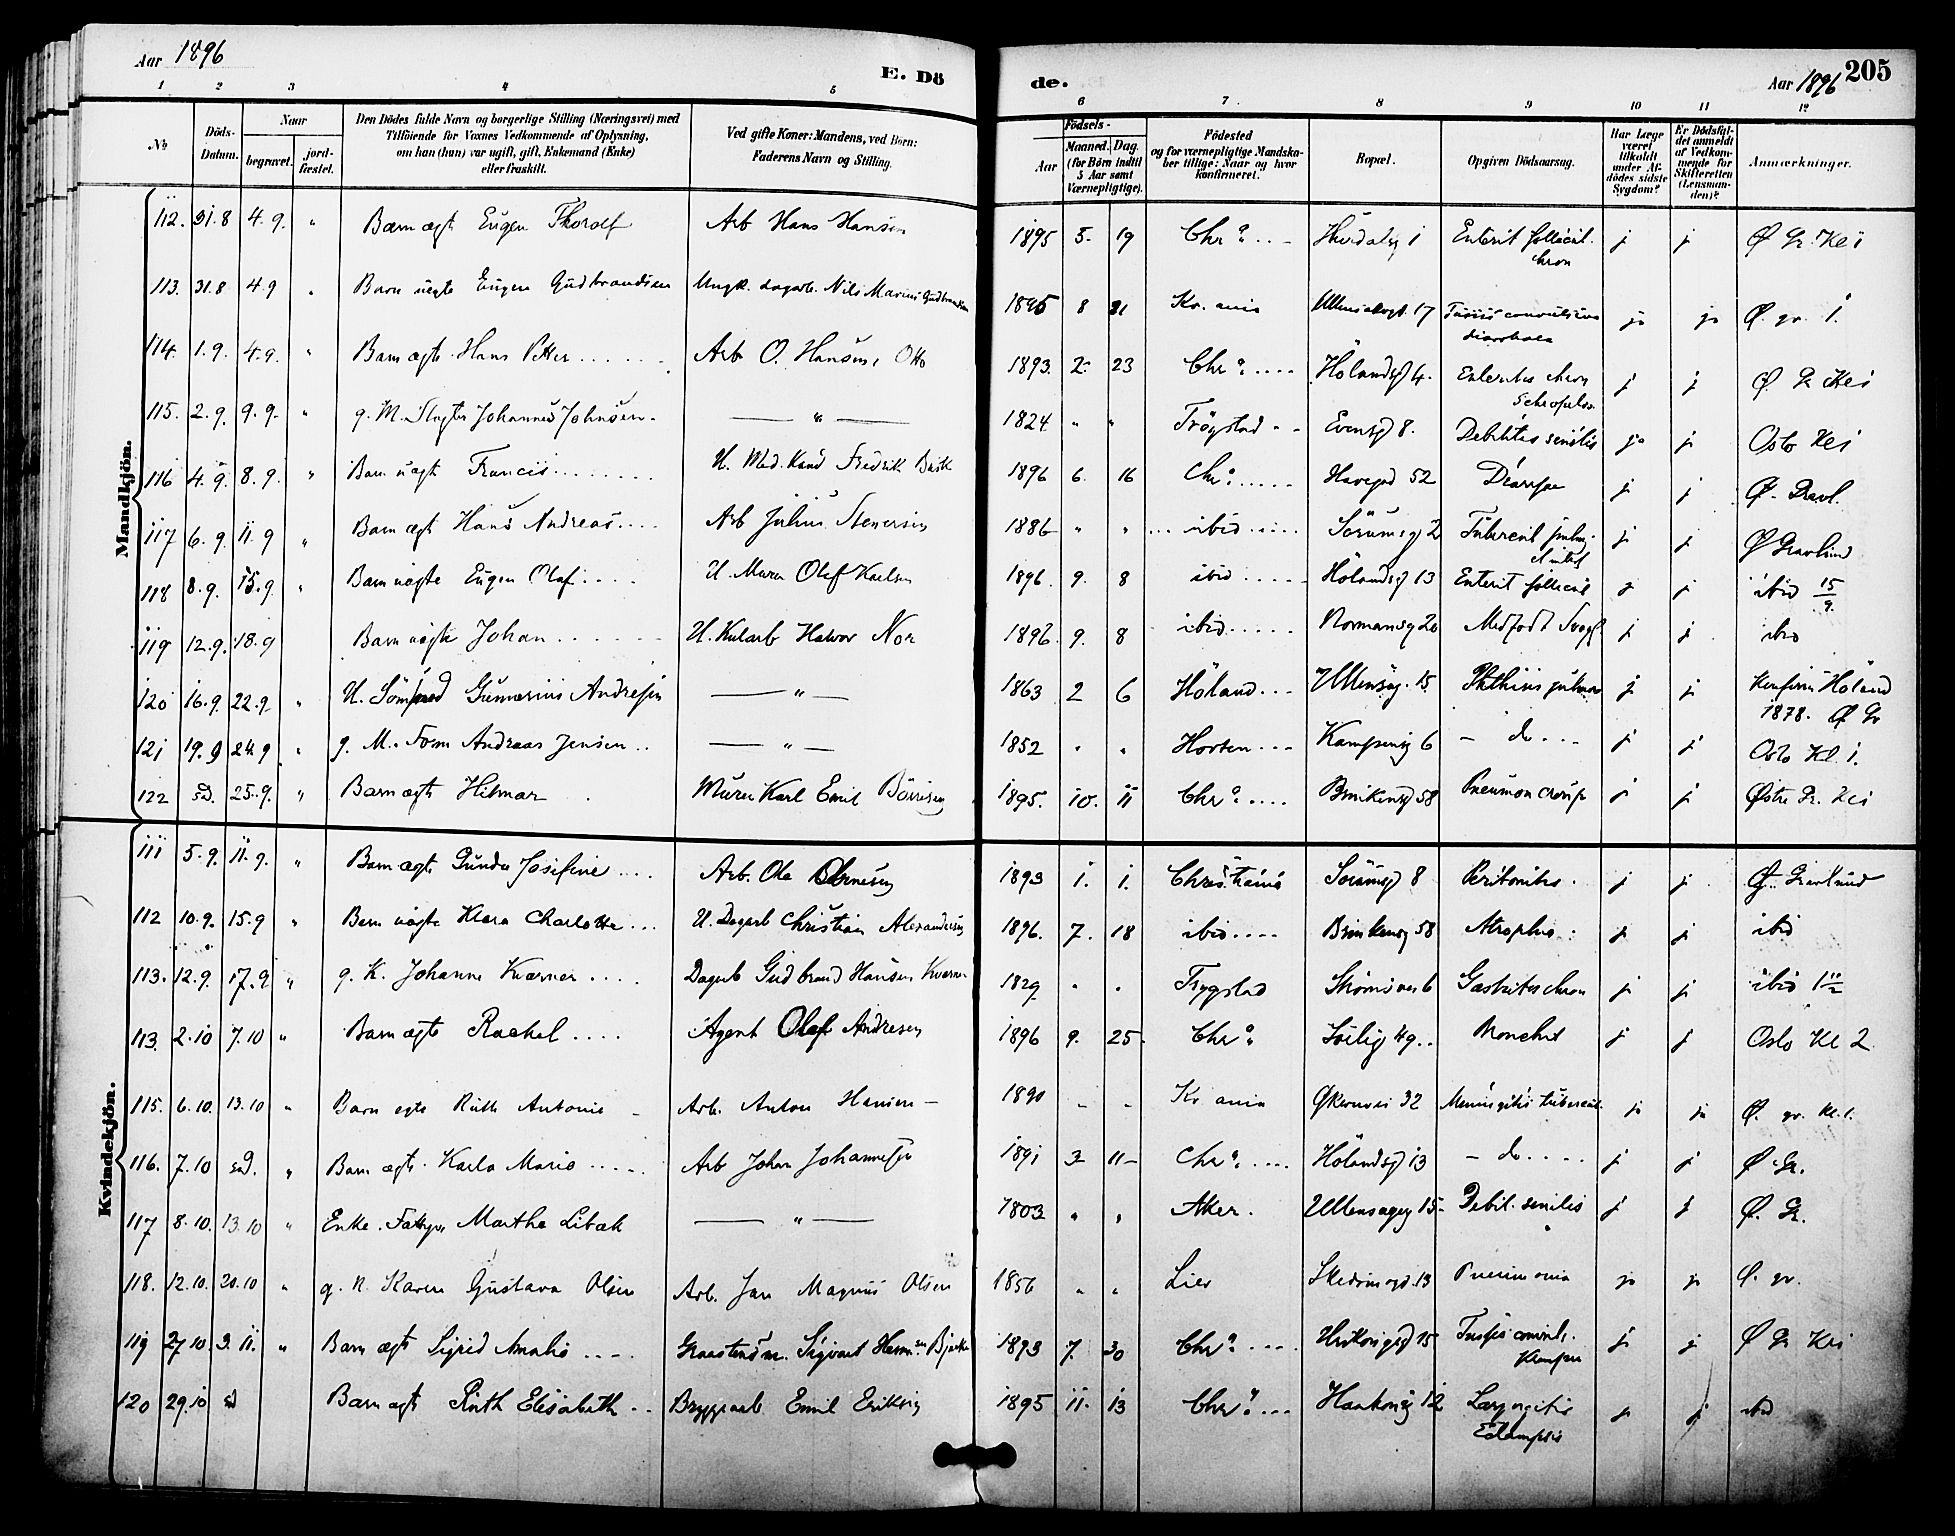 Aar 1896
E. Dö
de.
Aar 1896 205
1 2 3 4 5 6 7. 8 9 10 11 12
No
Döds-Datum.
Naar
begravet.
jord-fæstet.
Den Dödes fulde Navn og borgerlige Stilling (Næringsvei) med
Tilföiende for Voxnes Vedkommende af Oplysning,
om han (hun) var ugift, gift, Enkemand (Enke)
eller fraskilt.
Ved gifte Koner: Mandens, ved Börn:
Faderens Navn og Stilling.
Födsels-
Aar
Maaned. Dag.
(for Börn indtil
5 Aar samt
Værnepligtige).
Födested
og for værnepligtige Mandska-
ber tillige: Naar og hvor
konfirmeret.
Bopæl.
Opgiven Dödsaarsag.
Har Læge
været
tilkaldt
under Af-
dödes sidste
Sygdom?
Er Dödsfal-
det anmeldt
af Vedkom-
mende for
Skifteretten
(Lensman-
den)?
Anmærkninger.
Mandkjön.
112. 31.8 4.9. " Barn ægt Eugen Thorolf Arb Hans Hansen 1895 5. 19 Chra... 1 Enterit follicul. chron j j Ø Gr. Kl i
113. 31.8 4.9 " Barn uegte Eugen Gudbrandsen Ungk. dagarb. Nils Marius Gudbrandsen 1895 8 21 Kr. ania Ullensakergt. 17 Tussis convulsiva diarrhoea ja ja Ø. gr. 1.
114. 1.9. 4.9. " Barn ægte Hans Petter...... Arb O. Hansen, Otto 1893. 2. 23 Chra.... Hölandsg 4. Enteritis chron Schrophulos. j j Ø Gr Kl i
115. 2.9. 9.9. " g. M. Slagter Johannes Johnsen. — " — 1824 " " Trögstad - - Evensg 8. Debilitas senilis ja j Oslo Kl i
116 4.9. 8.9. " Barn uægt Francis...... U. Med. Kand Fredrik 1896 6. 16 Chra..... Havegad 52 Diarrhoe j j Ø. Gravl.
117 6.9. 11.9 " Barn ægt Hans Andreas.... Arb Julius Stenersen 1886 " " ...ibid..... Sörumsg 2 Tubercul pulm. j j Ø Gravlund
118 8.9. 15.9. " Barn uägte Eugen Olaf.... U. Murer Olaf Karlsen 1896. 9. 8 ibid..... Hölandsg 13 Enterit follicul j j ibid 15/9.
119 12.9. 18.9 Barn uägte Johan...... U. Kularb Halvor Nor 1896. 9. 8 ibid..... Normansg 20 Medfödt Svagh. j j ibid
120 16.9. 22.9 " U. Sömand Gunerius Andresen — " — 1863 2 6 Höland... Ullensag. 15 Phthisis pulmon j j Konfirm Höland 1878. Ø Gr
121 19.9 24.9 " g. M. Form Andreas Jensen.. — " — 1852 " " Horten... Kampensg 6 - do... j j Oslo Kl. 1.
122 sD. 25.9. " Barn ægte Hilmar Murer Karl Emil 1895. 10. 11 Chra..... Brinkensg 58 Pneumon croup j j Østre Gr. Kl i
Kvindekjön.
111 5.9. 11.9. " Barn ægte Gunda Josefine.... Arb. Ole 1893 1. 1. Christiania Sörumsg 8 Peritonitis. j j Ø. Gravlund
112 10.9. 15.9 " Barn uägte Klara Charlotte... U. Dagarb Christian Alexandersen 1896. 7. 18 ibid.... Brinkensg 58 Atrophia. j j ibid
113. 12.9. 17.9 " g. K. Johanne Kværner.... Dagarb Gudbrand Hansen Kværner 1829 " " Trygstad Strömsvei 6 Gastritis chron j j ibid
113. 2.10 7.10 " Barn ægte Rachel.... Agent Olaf Andresen 1896 9. 25. Chra. 49.. Bronchit j j Oslo Kl 2
115. 6.10. 13.10 " Barn egte Ruth Antonie - Arb. Anton Hansen - 1890 - - Kr ania Økernvei 32 Meningitis tubercul. ja ja Ø. gr. Kl. 1.
116. 7.10 sD. " Barn ægte Karla Marie..... Arb Johan Johannesen 1891 3 11- Chra..... Hölandsg 13 - do.... j j Ø Gr.
117 8.10. 13.10 " Enke. Martha Libak — " — 1803 " " Aker. Ullensagerg 15 Debil. senilis j j Ø. Gr.
118. 12.10. 20.10 " g. K. Karen Gustava Olsen Arb. Jan Magnus Olsen 1856 " " Lier 13 Pneumonia ja ja Ø. gr.
119 27.10 3.11. " Barn ægt Sigrid Amalie.... Sigvart 1893 7. 30 Chra..... 15 Tussis convuls. j j Ø Gr Kl i
120 29.10 sd Barn ægt Ruth Elisabeth.. Bryggearb. Emil Eriksen 1895 11. 13 Chra.... Haakonsg 12 Laryngitis Eclampsis j j ibid